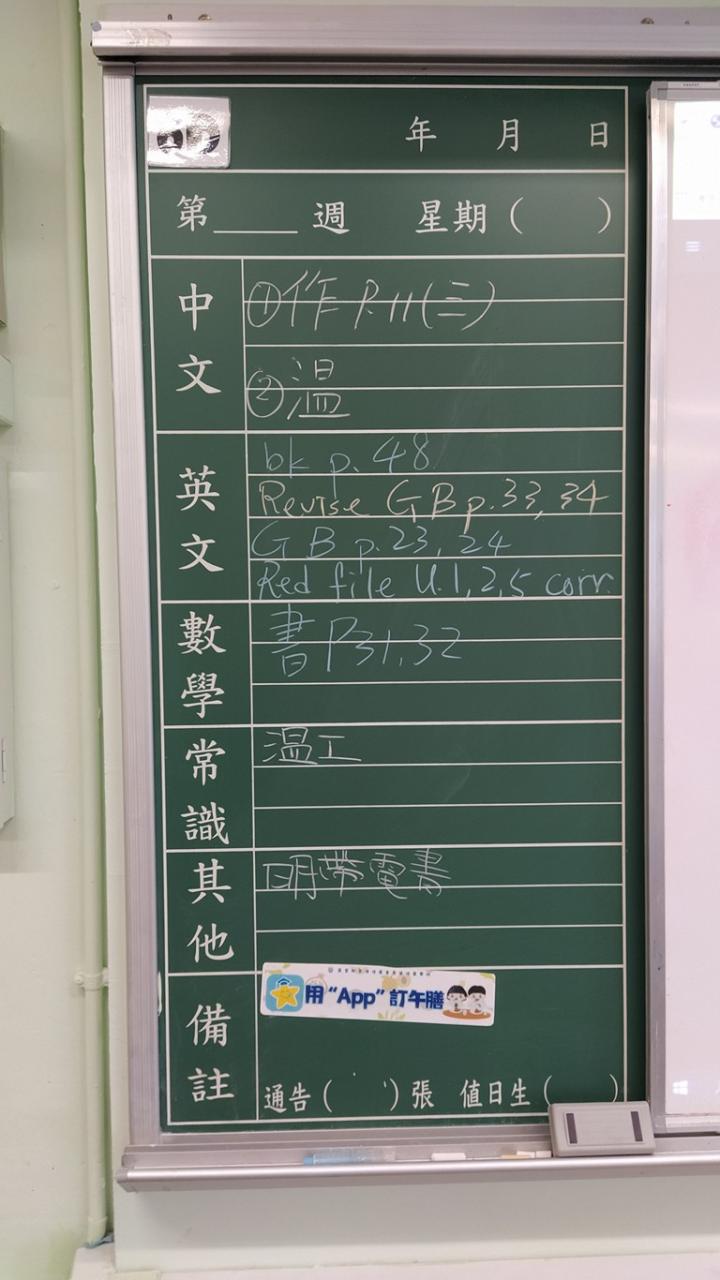 年 月 日
第____週 星期( )
中文
①作 P.11(三)
②温
英文
bk p.48
Revise GB p.33, 34
GB p.23, 24
Red file U.1,2,5 corr.
數學
書P31,32
常識
温工
其他
明帶電書
備註
用“App”訂午膳
通告( )張 值日生( )